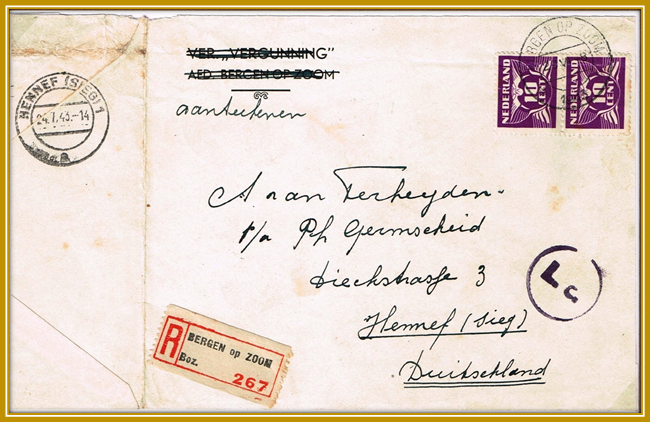 VER. „VERGUNNING"
AFD. BERGEN OP ZOOM
aantekenen
NEDERLAND
10
CENT
NEDERLAND
10
CENT
BERGEN OP ZOOM
HENNEF (SIEG) 1
24.7.43.-14
a
A. van Terheyden
p/a Ph Germscheid
Dieckstrasse 3
Hennef (Sieg)
Duitschland
Lc
R
BERGEN op ZOOM
Boz.
267